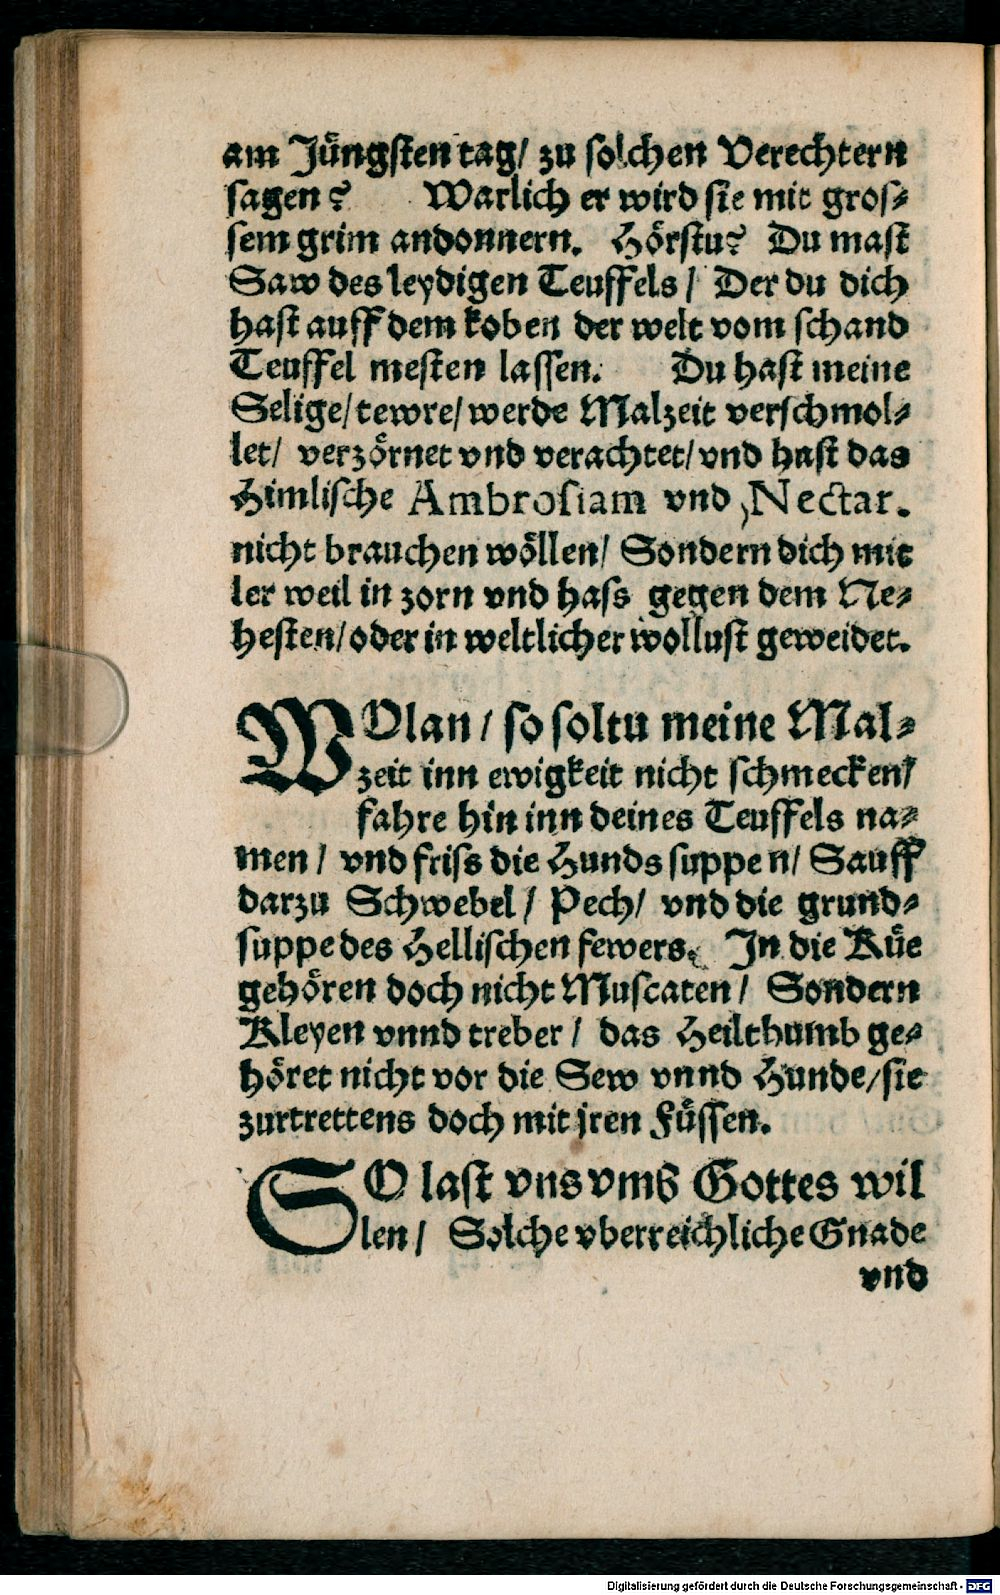 am Jüngsten tag/ zu solchen Verechtern
sagen? Warlich er wird sie mit gros⸗
sem grim andonnern. Hörstu? Du mast
Saw des leydigen Teuffels/ Der du dich
hast auff dem koben der welt vom schand
Teuffel mesten lassen. Du hast meine
Selige/ tewre/ werde Malzeit verschmol⸗
let/ verzörnet vnd verachtet/ vnd hast das
Himlische Ambrosiam vnd Nectar.
nicht brauchen wöllen/ Sondern dich mit
ler weil in zorn vnd hass gegen dem Ne⸗
hesten/ oder in weltlicher wollust geweidet.
WOlan/ so soltu meine Mal⸗
zeit inn ewigkeit nicht schmecken/
fahre hin inn deines Teuffels na⸗
men/ vnd friss die Hunds suppen/ Sauff
darzu Schwebel/ Pech/ vnd die grund⸗
suppe des Hellischen fewers. In die Küe
gehören doch nicht Muscaten/ Sondern
Kleyen vnnd treber/ das Heilthumb ge⸗
höret nicht vor die Sew vnnd Hunde/ sie
zurtrettens doch mit jren Füssen.
SO last vns vmb Gottes wil
len/ Solche vberreichliche Gnade
vnd
Digitalisierung gefördert durch die Deutsche Forschungsgemeinschaft - DFG